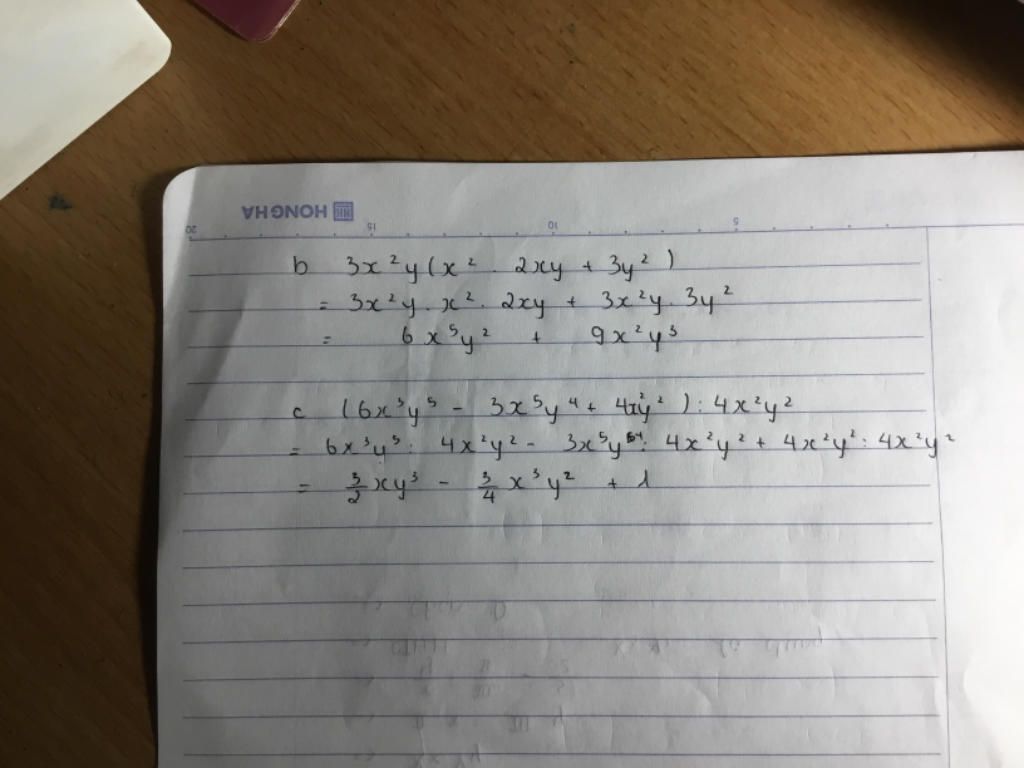 HONG HA
20 15 10 5
b 3x²y(x² . 2xy + 3y²)
= 3x²y . x² . 2xy + 3x²y . 3y²
= 6x⁵y² + 9x²y³
c (6x³y⁵ - 3x⁵y⁴ + 4x²y²) : 4x²y²
= 6x³y⁵ : 4x²y² - 3x⁵y⁴ : 4x²y² + 4x²y² : 4x²y²
= 3/2 xy³ - 3/4 x³y² + 1